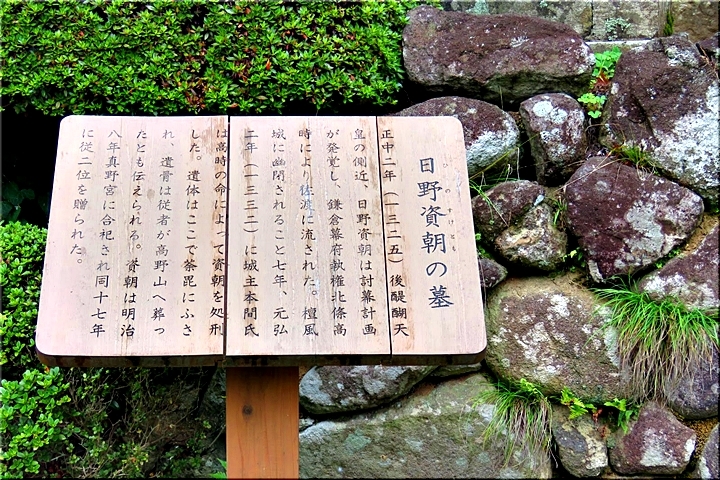 日野資朝の墓
ひのすけとも
正中二年（一三二五）後醍醐天
皇の側近、日野資朝は討幕計画
が発覚し、鎌倉幕府執権北條高
時により佐渡に流された。檀風
城に幽閉されること七年、元弘
二年（一三三二）に城主本間氏
は高時の命によって資朝を処刑
した。遺体はここで荼毘にふさ
れ、遺骨は従者が高野山へ葬っ
たとも伝えられる。資朝は明治
八年真野宮に合祀され同十七年
に従二位を贈られた。